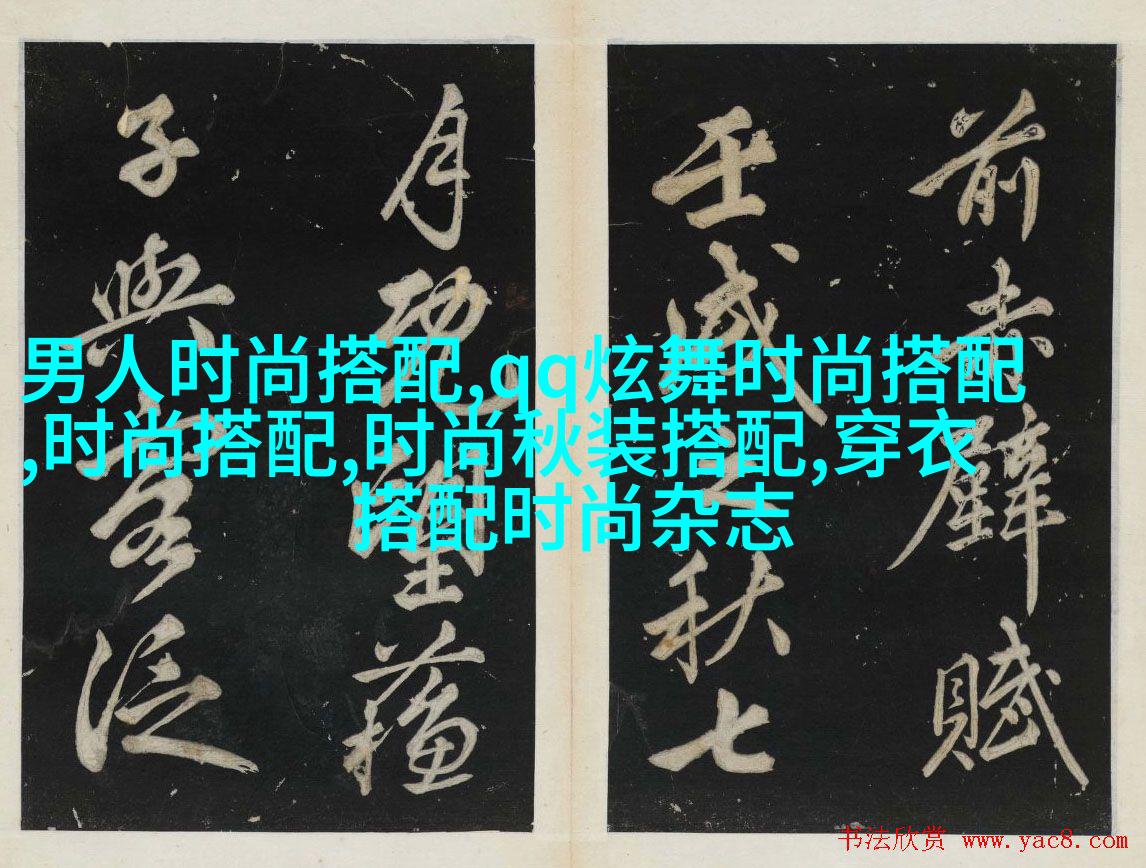 前赤壁賦
壬戌之秋七
月既望蘇
子與客泛
男人时尚搭配,qq炫舞时尚搭配
,时尚搭配,时尚秋装搭配,穿衣
搭配时尚杂志
书法欣赏 www.yac8.com